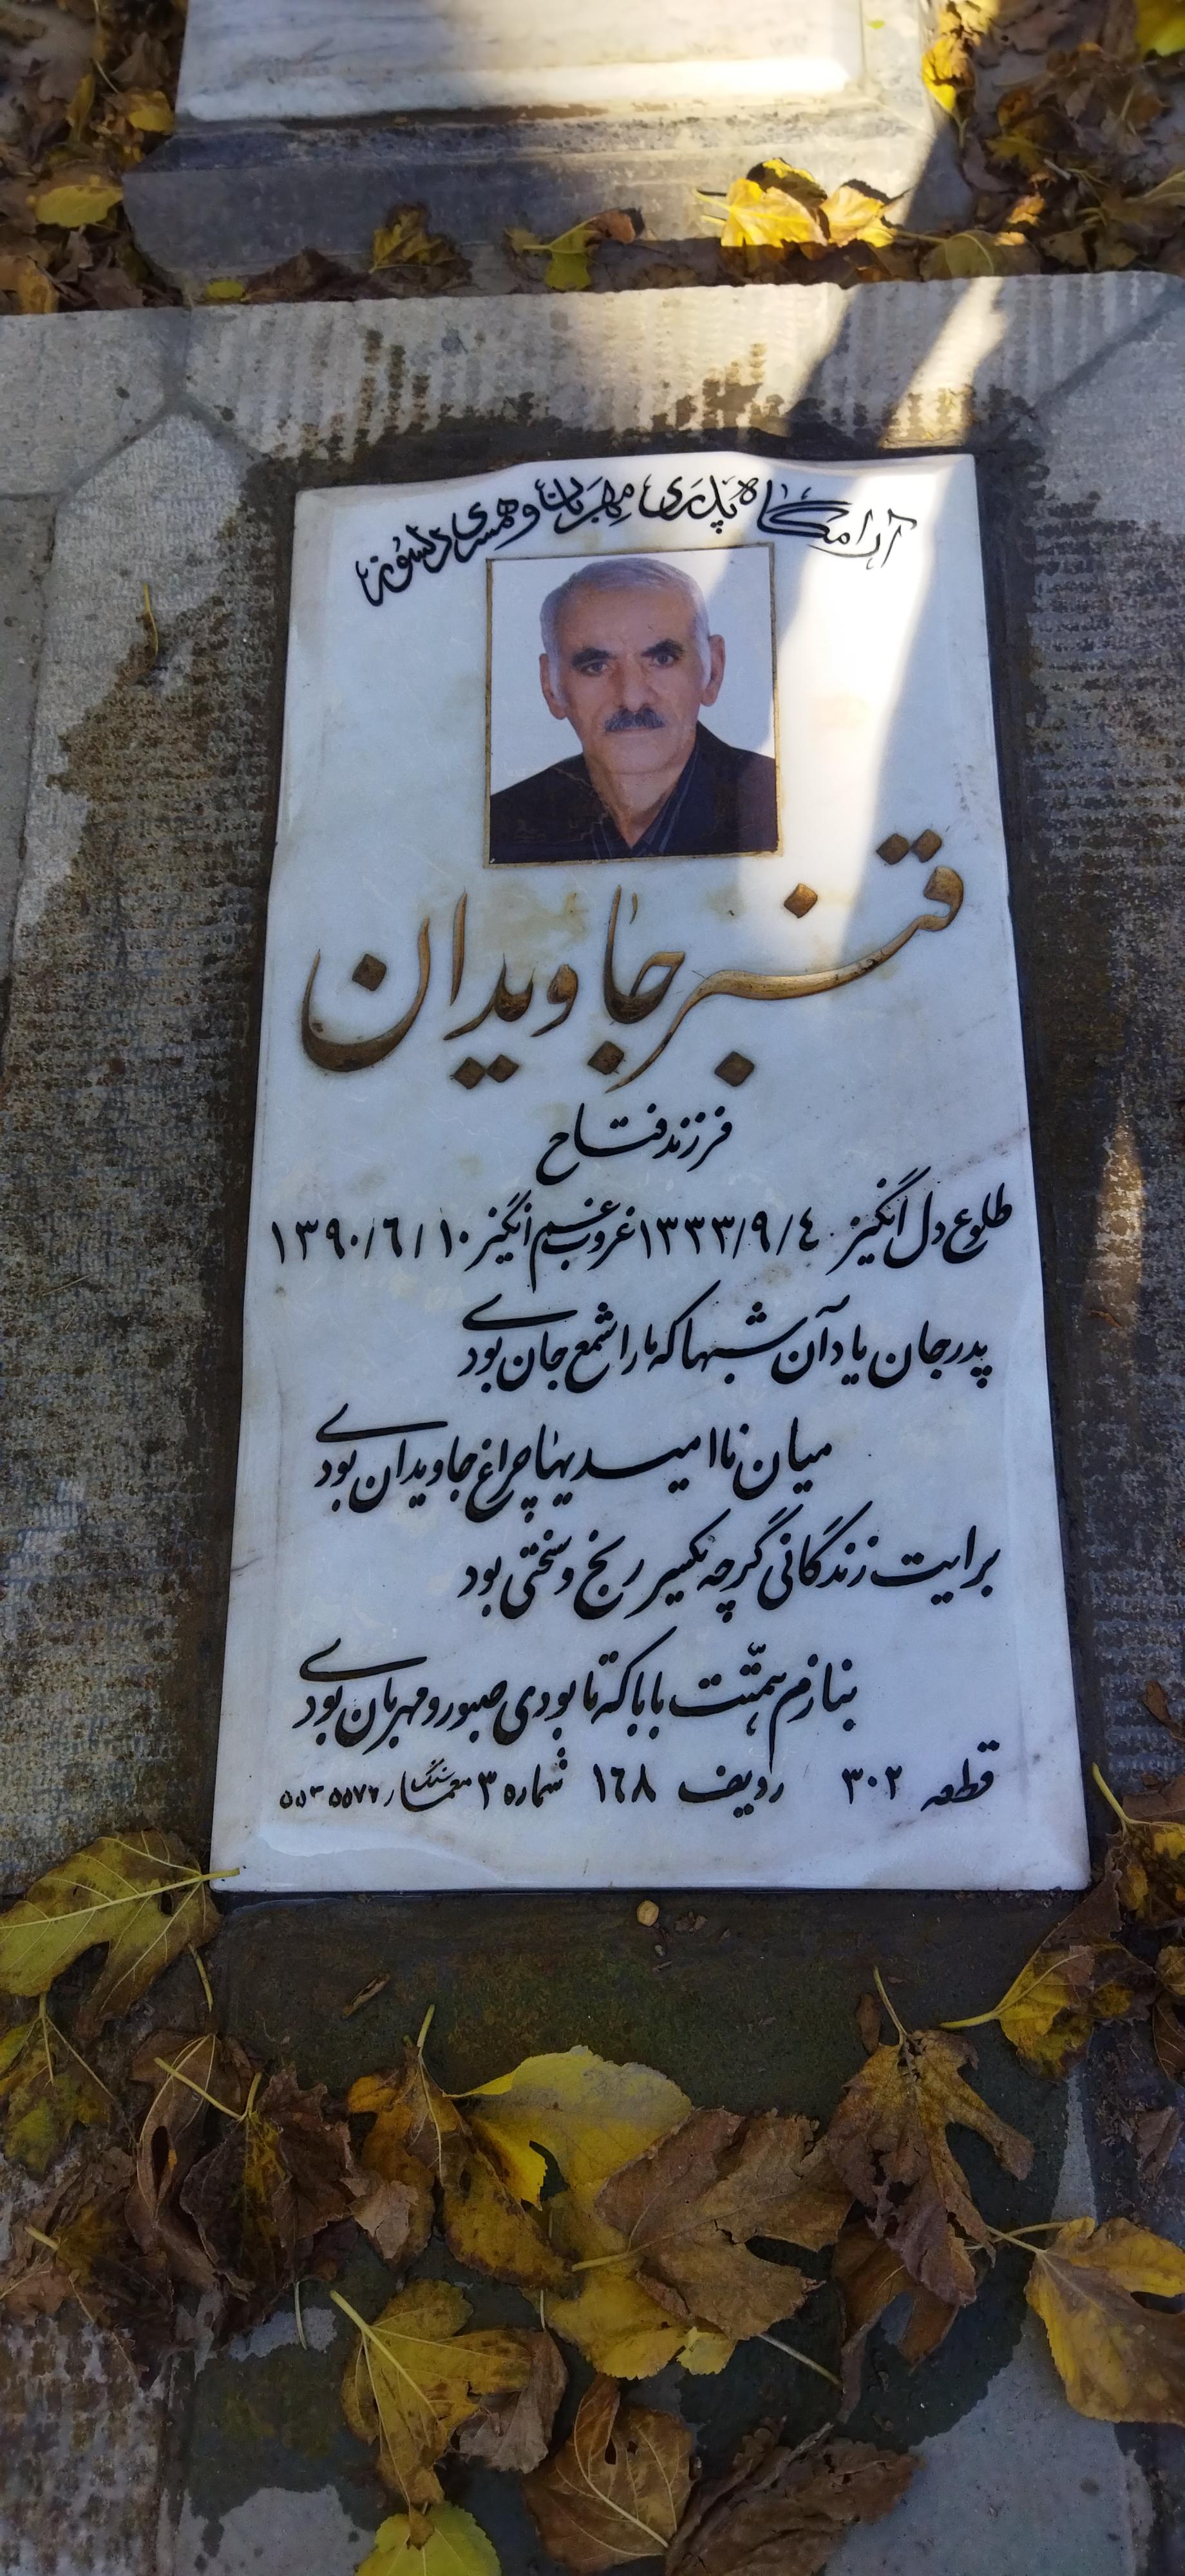 آرامگاه پدری مهربان و همسری دلسوز
قنبر جاویدان
فرزند فتاح
طلوع دل انگیز ۱۳۳۳/۹/٤ غروب غم انگیز ۱۳۹۰/٦/۱۰
پدر جان یاد آن شبها که ما را شمع جان بودی
میان ناامیدیها چراغ جاویدان بودی
برایت زندگانی گرچه یکسر رنج و سختی بود
بنازم همّتت بابا که تا بودی صبور و مهربان بودی
قطعه ۳۰۲ ردیف ۱٦۸ شماره ۳ سنگ معمار